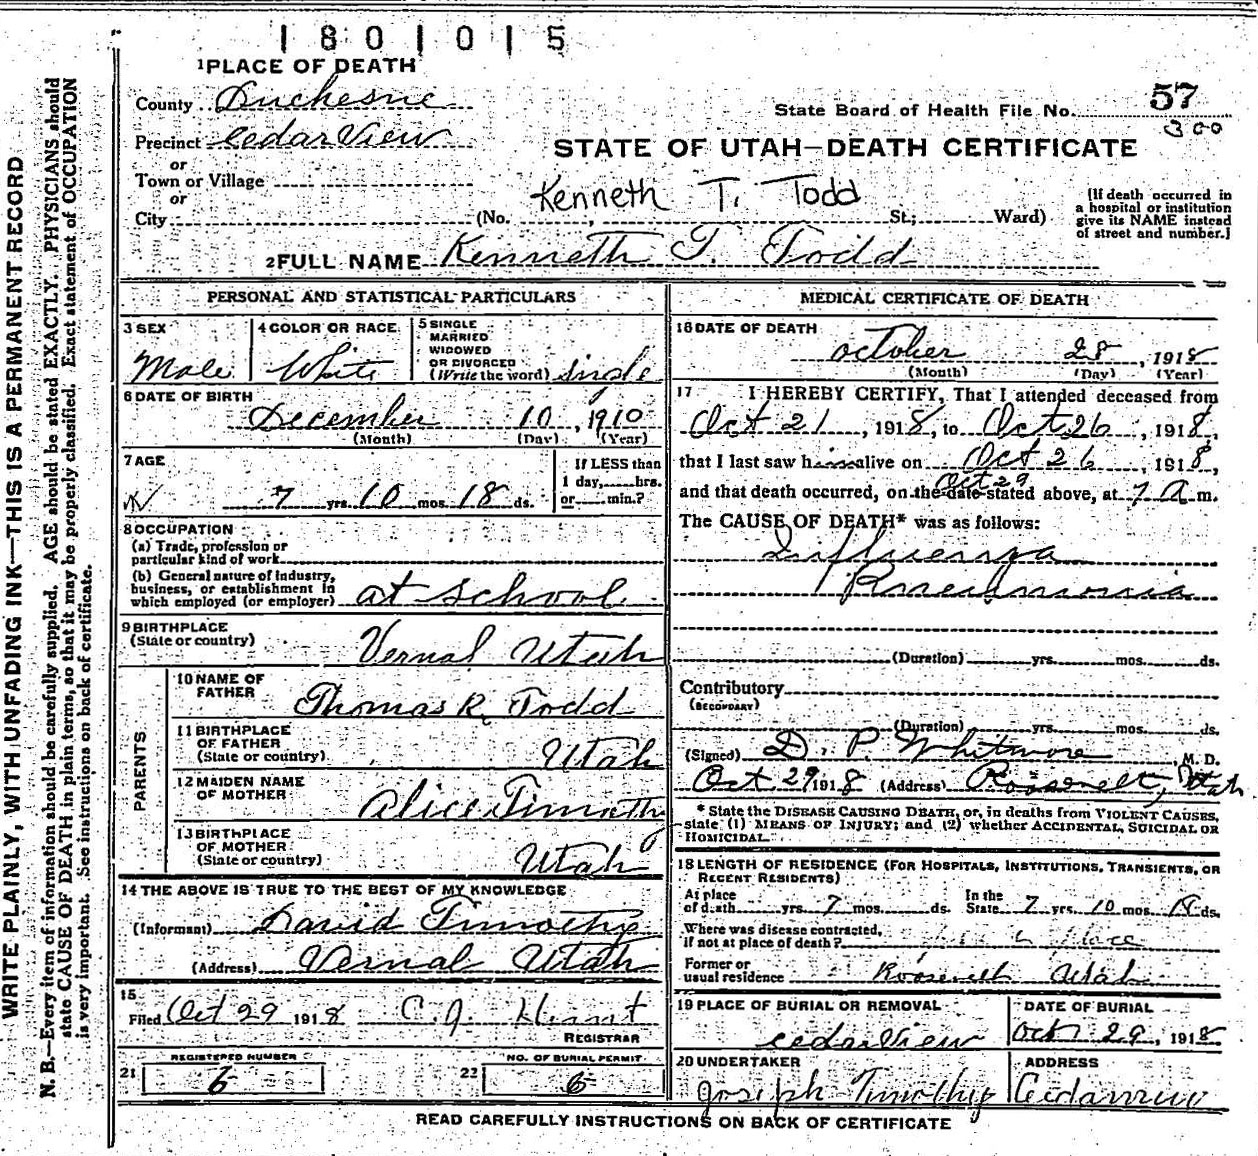 1801015
1 PLACE OF DEATH
County Duchesne
Precinct Cedar View
or
Town or Village
or
City (No. St.; Ward)
State Board of Health File No. 57
300
STATE OF UTAH—DEATH CERTIFICATE
Kenneth T. Todd
[If death occurred in
a hospital or institution
give its NAME instead
of street and number.]
2 FULL NAME Kenneth T. Todd
PERSONAL AND STATISTICAL PARTICULARS
3 SEX
Male
4 COLOR OR RACE
White
5 SINGLE
MARRIED
WIDOWED
OR DIVORCED
(Write the word) Single
6 DATE OF BIRTH
December 10, 1910
(Month) (Day) (Year)
7 AGE
7 yrs. 10 mos. 18 ds.
If LESS than
1 day, hrs.
or min.?
8 OCCUPATION
(a) Trade, profession or
particular kind of work
(b) General nature of Industry,
business, or establishment in
which employed (or employer) at school
9 BIRTHPLACE
(State or country) Vernal Utah
PARENTS
10 NAME OF
FATHER Thomas R. Todd
11 BIRTHPLACE
OF FATHER
(State or country) Utah
12 MAIDEN NAME
OF MOTHER Alice Timothy
13 BIRTHPLACE
OF MOTHER
(State or country) Utah
14 THE ABOVE IS TRUE TO THE BEST OF MY KNOWLEDGE
(Informant) David Timothy
(Address) Vernal Utah
15
Filed Oct 29 1918 C. J.
REGISTRAR
REGISTERED NUMBER
21 6
NO. OF BURIAL PERMIT
22 6
MEDICAL CERTIFICATE OF DEATH
16 DATE OF DEATH
October 28, 1918
(Month) (Day) (Year)
17 I HEREBY CERTIFY, That I attended deceased from
Oct 21, 1918, to Oct 26, 1918,
that I last saw him alive on Oct 26, 1918,
Oct 29
and that death occurred, on the date stated above, at 7 A m.
The CAUSE OF DEATH* was as follows:
Influenza
Pneumonia
(Duration) yrs. mos. ds.
Contributory
(SECONDARY)
(Duration) yrs. mos. ds.
(Signed) D. P. Whitmore, M. D.
Oct 29 1918 (Address) Roosevelt, Utah
* State the DISEASE CAUSING DEATH, or, in deaths from VIOLENT CAUSES,
state (1) MEANS OF INJURY; and (2) whether ACCIDENTAL, SUICIDAL OR
HOMICIDAL.
18 LENGTH OF RESIDENCE (FOR HOSPITALS, INSTITUTIONS, TRANSIENTS, OR
RECENT RESIDENTS)
At place
of death yrs. 7 mos. ds.
In the
State 7 yrs. 10 mos. 18 ds.
Where was disease contracted,
if not at place of death? place
Former or
usual residence Roosevelt Utah
19 PLACE OF BURIAL OR REMOVAL
Cedar View
DATE OF BURIAL
Oct 29, 1918
20 UNDERTAKER
Joseph Timothy
ADDRESS
Cedarview
READ CAREFULLY INSTRUCTIONS ON BACK OF CERTIFICATE
WRITE PLAINLY, WITH UNFADING INK—THIS IS A PERMANENT RECORD
N. B.—Every item of information should be carefully supplied. AGE should be stated EXACTLY. PHYSICIANS should
state CAUSE OF DEATH in plain terms, so that it may be properly classified. Exact statement of OCCUPATION
is very important. See instructions on back of certificate.